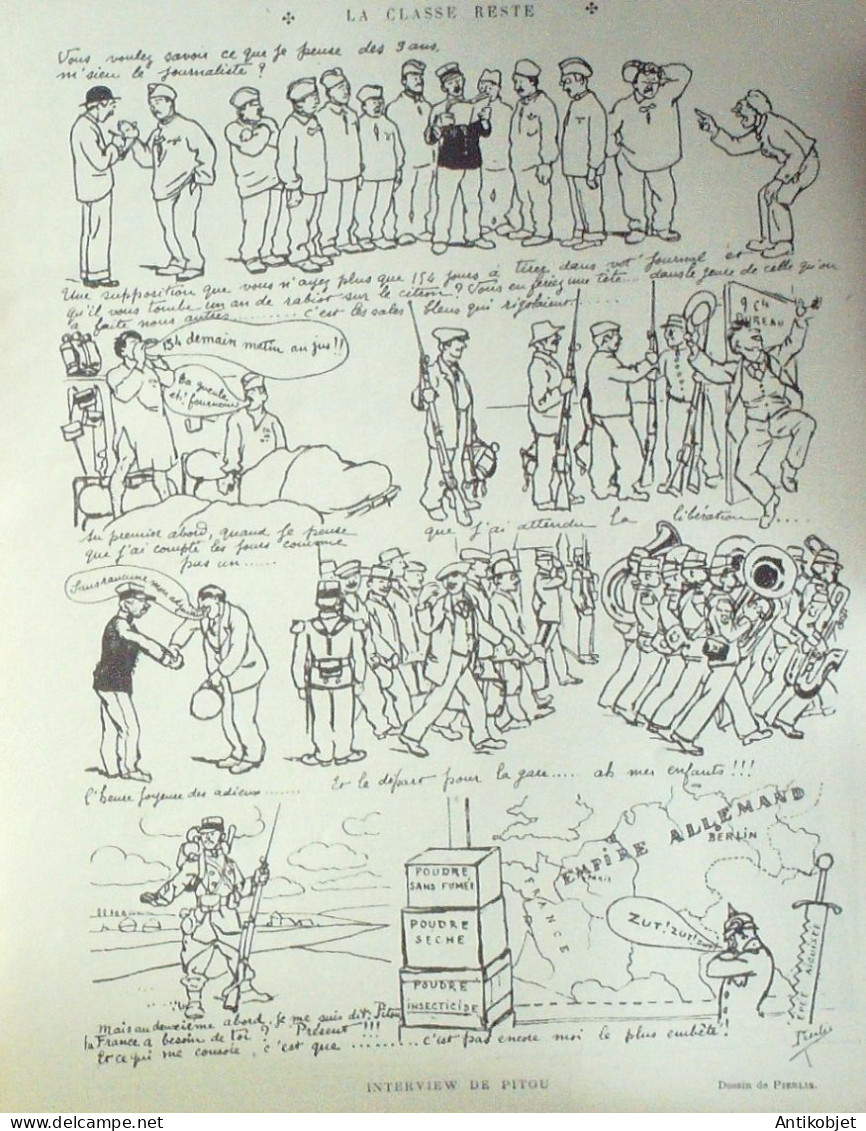 LA CLASSE RESTE
Vous voulez savoir ce que je pense des 3 ans,
m'sieu le journaliste ?
Une supposition que vous n'ayez plus que 154 jours à tirer dans vot' journal et
qu'il vous tombe un an de rabiot sur le citron ? Vous en feriez une tête... dans le genre de celle qu'on
a faite nous autres......... c'est les sales bleus qui rigolaient......
154 demain matin au jus !!
Ta gueule
eh ! fourneau
964
BUREAU
Au premier abord, quand je pense
que j'ai compté les jours comme
pas un......
que j'ai attendu la libération.....
Sans rancune mon adjudant
L'heure joyeuse des adieux.......
Et le départ pour la gare..... ah mes enfants !!!
POUDRE
SANS FUMÉE
POUDRE
SECHE
POUDRE
INSECTICIDE
FRANCE
EMPIRE ALLEMAND
BERLIN
ZUT! ZUT!
EPÉE AIGUISÉE
Mais au deuxième abord, je me suis dit : Pitou
la France a besoin de toi ? Présent !!!
Et ce qui me console, c'est que ......... c'est pas encore moi le plus embêté !
INTERVIEW DE PITOU
Dessin de PIERLIS.
Antikobjet - delcampe.net